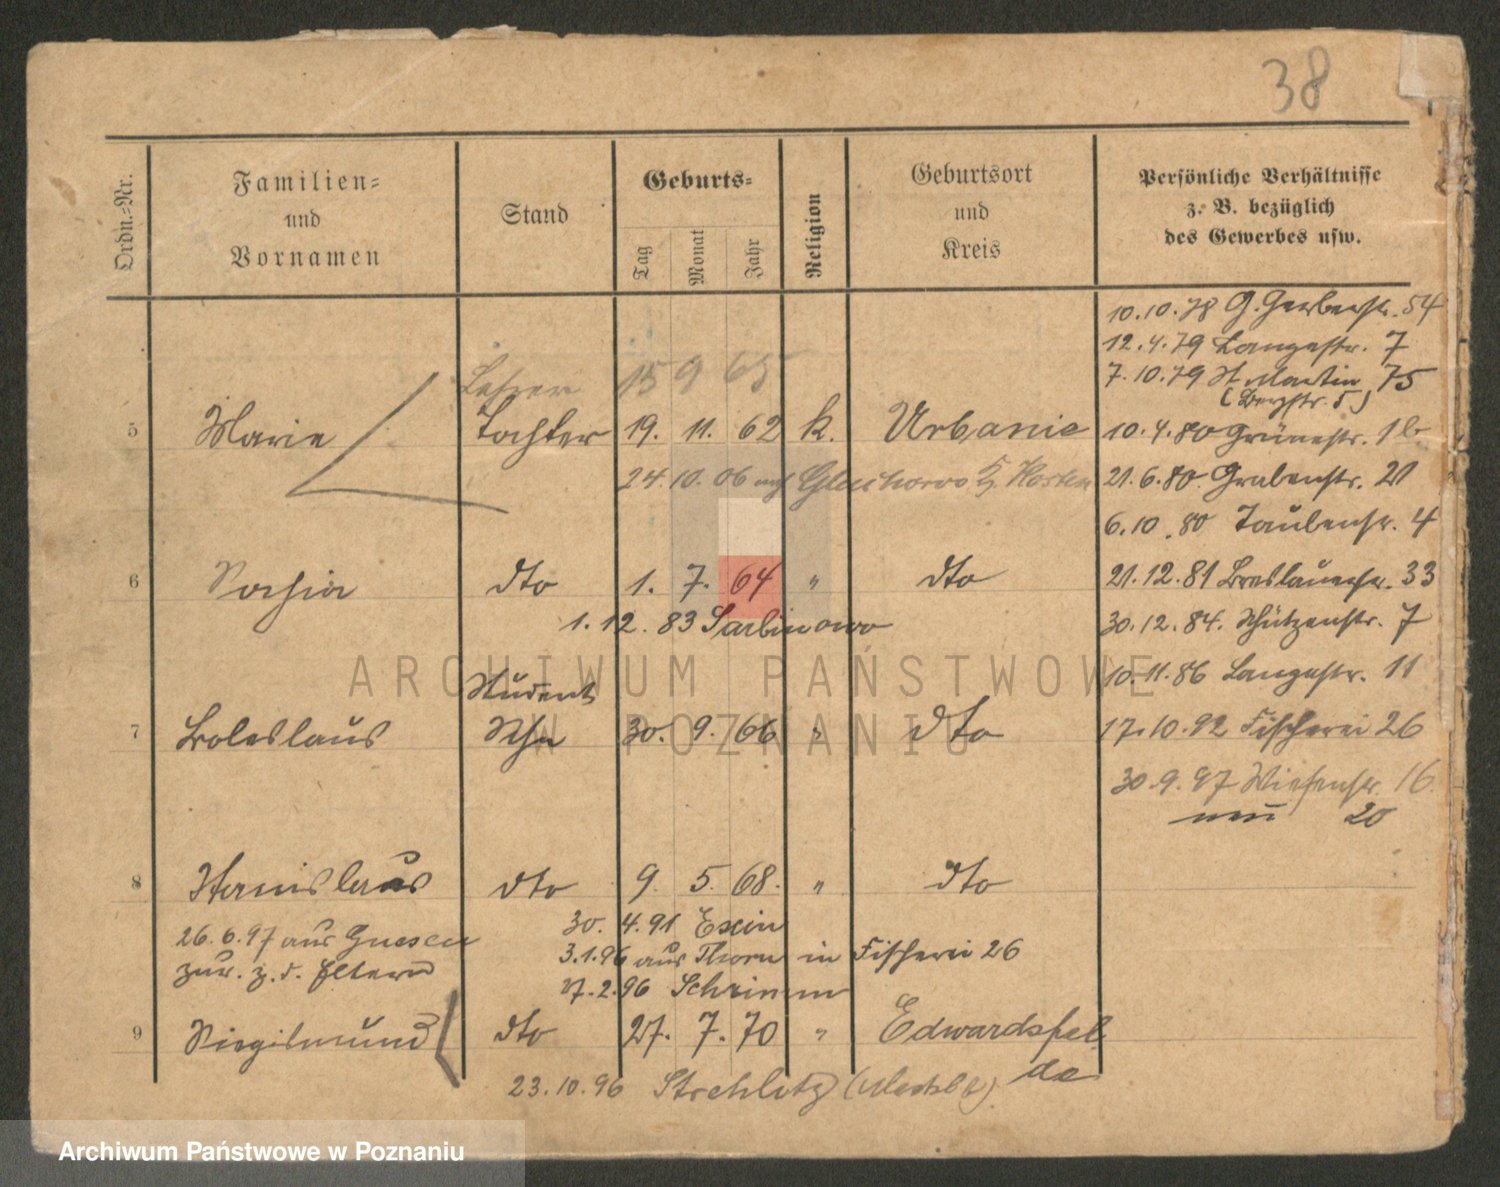 38
Ordn.-Nr.
Familien-
und
Vornamen
Stand
Geburts-
Tag
Monat
Jahr
Religion
Geburtsort
und
Kreis
Persönliche Verhältnisse
z. B. bezüglich
des Gewerbes usw.
10.10.78 G. Gerberstr. 54
12.4.79 Langestr. 7
7.10.79 St Martin 75
(Bergstr. 5)
Lehrer 15 9 65
5 Marie Tochter 19. 11. 62 k. Urbanie 10.4.80 Grünestr.
24.10.06 21.6.80 Grabenstr. 21
6.10.80 Taubenstr. 4
6 Sophia dto 1. 7. 64 " dto 21.12.81 Breslauerstr. 33
1.12.83 Sarbinowo 30.12.84. Schützenstr. 7
Student 10.11.86 Langestr. 11
7 Boleslaus Sohn 30. 9. 66 " dto 17.10.92 Fischerei 26
30.9.97 Wiesenstr. 16
neu 20
8 Stanislaus dto 9. 5. 68. " dto
26.6.97 aus Gnesen 30. 4.91 Exin
zur. z. d. Eltern 3.1.96 aus Thorn in Fischerei 26
27.2.96 Schrimm
9 Siegismund dto 27. 7. 70 " Edwardsfel
de
23.10.96 Strehlitz
ARCHIWUM PAŃSTWOWE
W POZNANIU
Archiwum Państwowe w Poznaniu